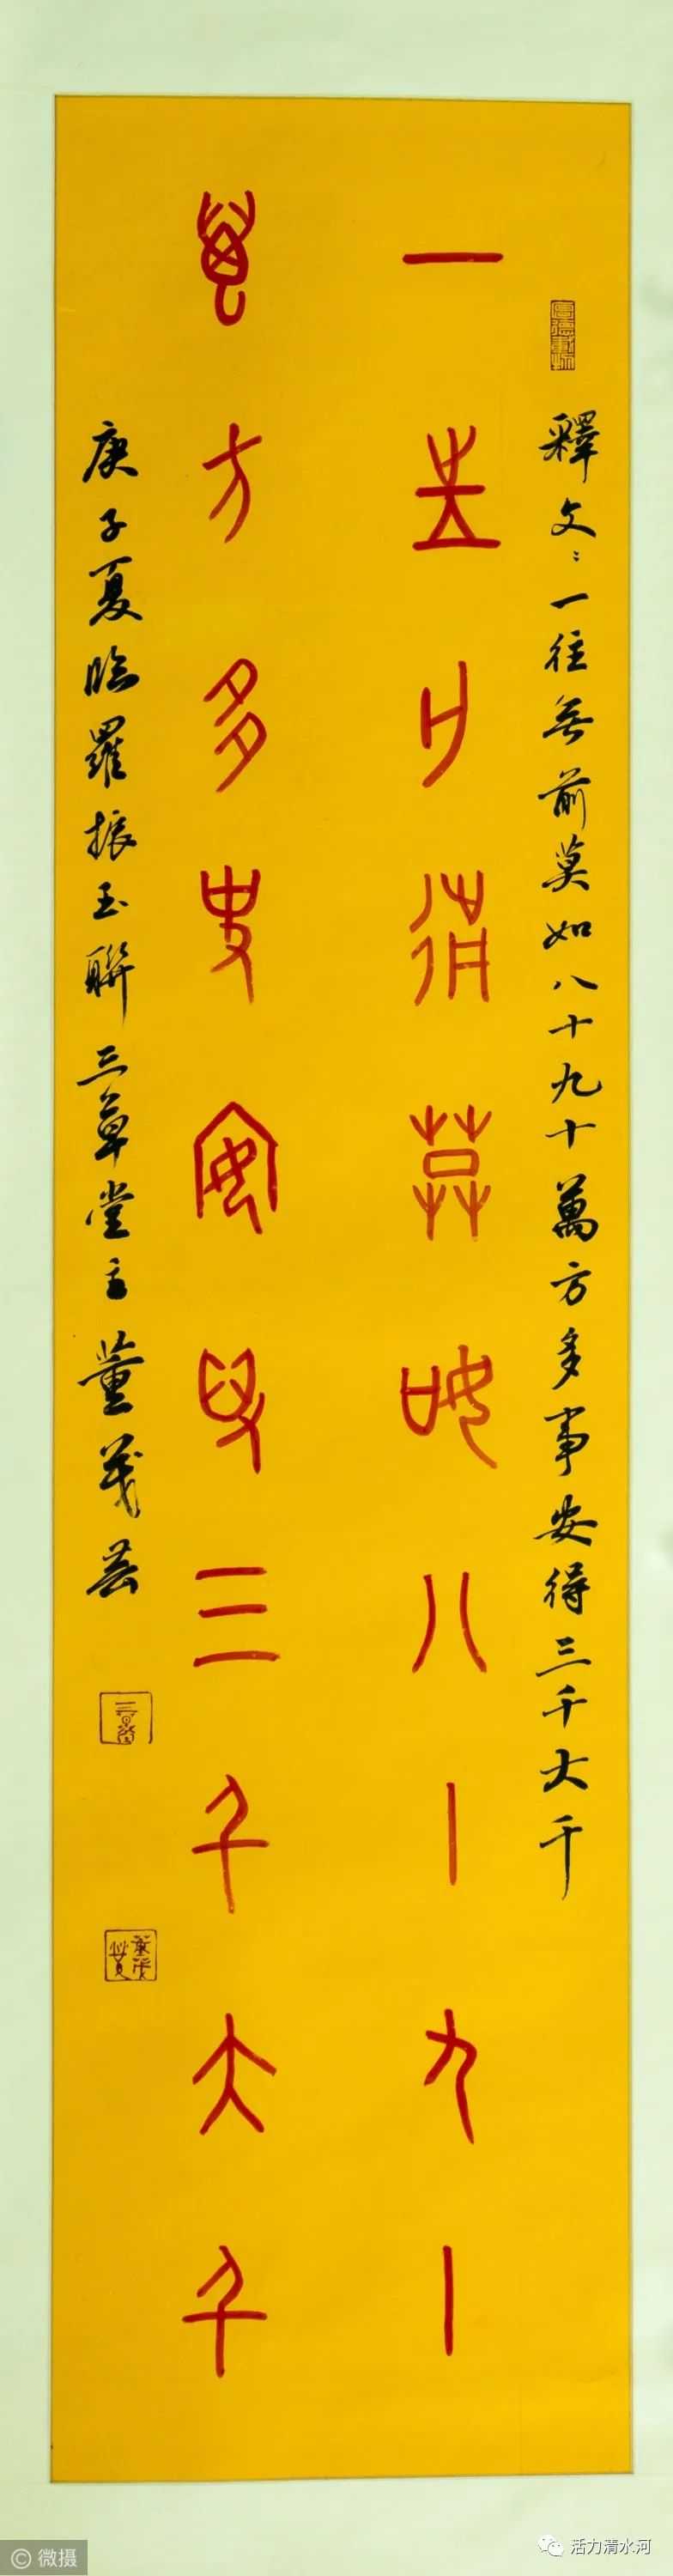 釋文：一往無前莫如八十九十萬方多事安得三千大千
一往亡前莫如八十九十
萬方多事安得三千大千
庚子夏臨羅振玉聯三草堂主董義芸
微摄
活力清水河